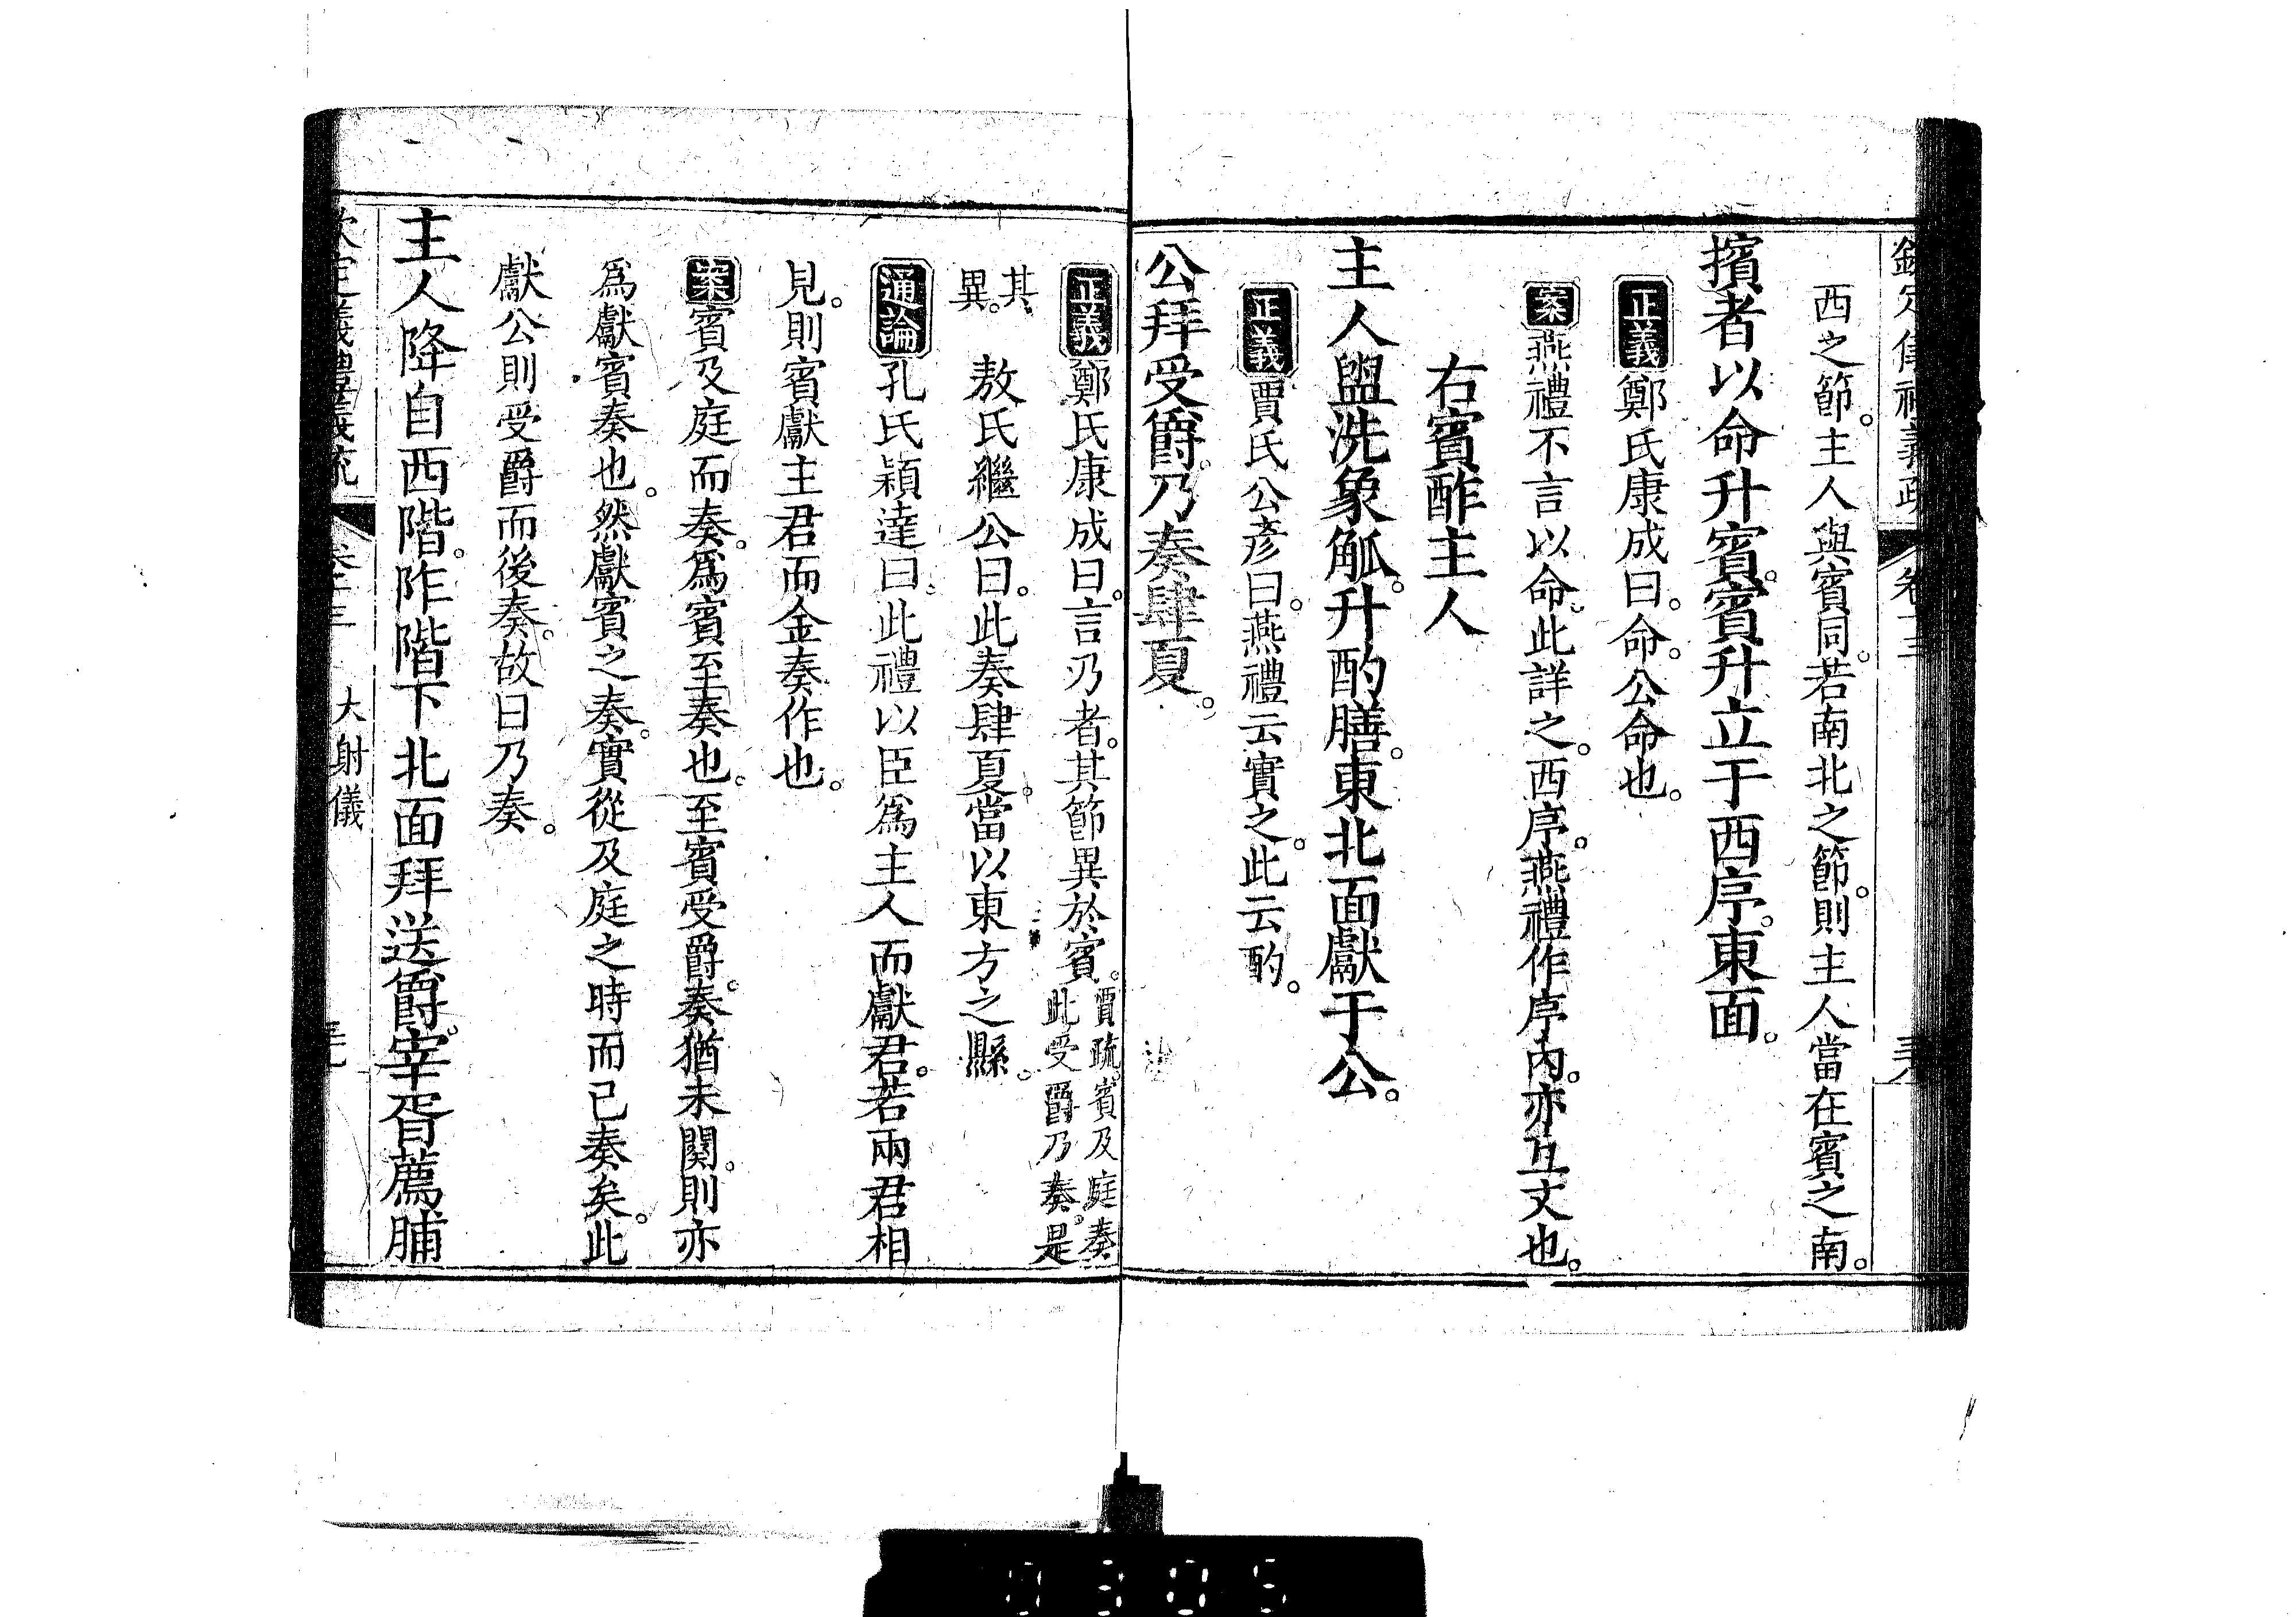 西之節。主人與賓同。若南北之節。則主人當在賓之南。
擯者以命升賓。賓升立于西序。東面。
正義鄭氏康成曰。命。公命也。
案燕禮不言以命。此詳之。西序。燕禮作序內。亦互文也。
右賓酢主人
主人盥洗象觚。升酌膳。東北面獻于公。
正義賈氏公彥曰。燕禮云實之。此云酌。
公拜受爵。乃奏肆夏。
正義鄭氏康成曰。言乃者。其節異於賓。賈疏。賓及庭奏
此受爵乃奏。是
其
異。
敖氏繼公曰。此奏肆夏。當以東方之縣。
通論孔氏穎達曰。此禮以臣為主人而獻君。若兩君相
見。則賓獻主君而金奏作也。
案賓及庭而奏。為賓至奏也。至賓受爵。奏猶未闋。則亦
為獻賓奏也。然獻賓之奏。實從及庭之時而已奏矣。此
獻公則受爵而後奏。故曰乃奏。
主人降自西階。阼階下北面拜送爵。宰胥薦脯
大射儀
0305